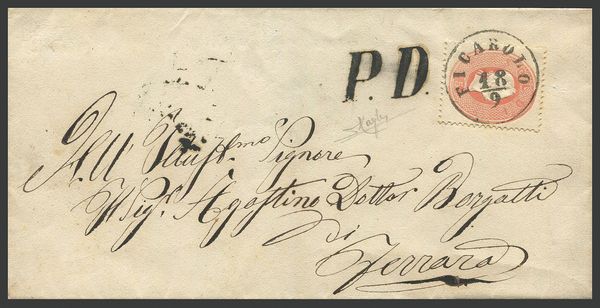 P.D.
FICAROLO
18/9
All' Illust.mo Signore
Sig.r Agostino Dottor Borgatti
di
Ferrara